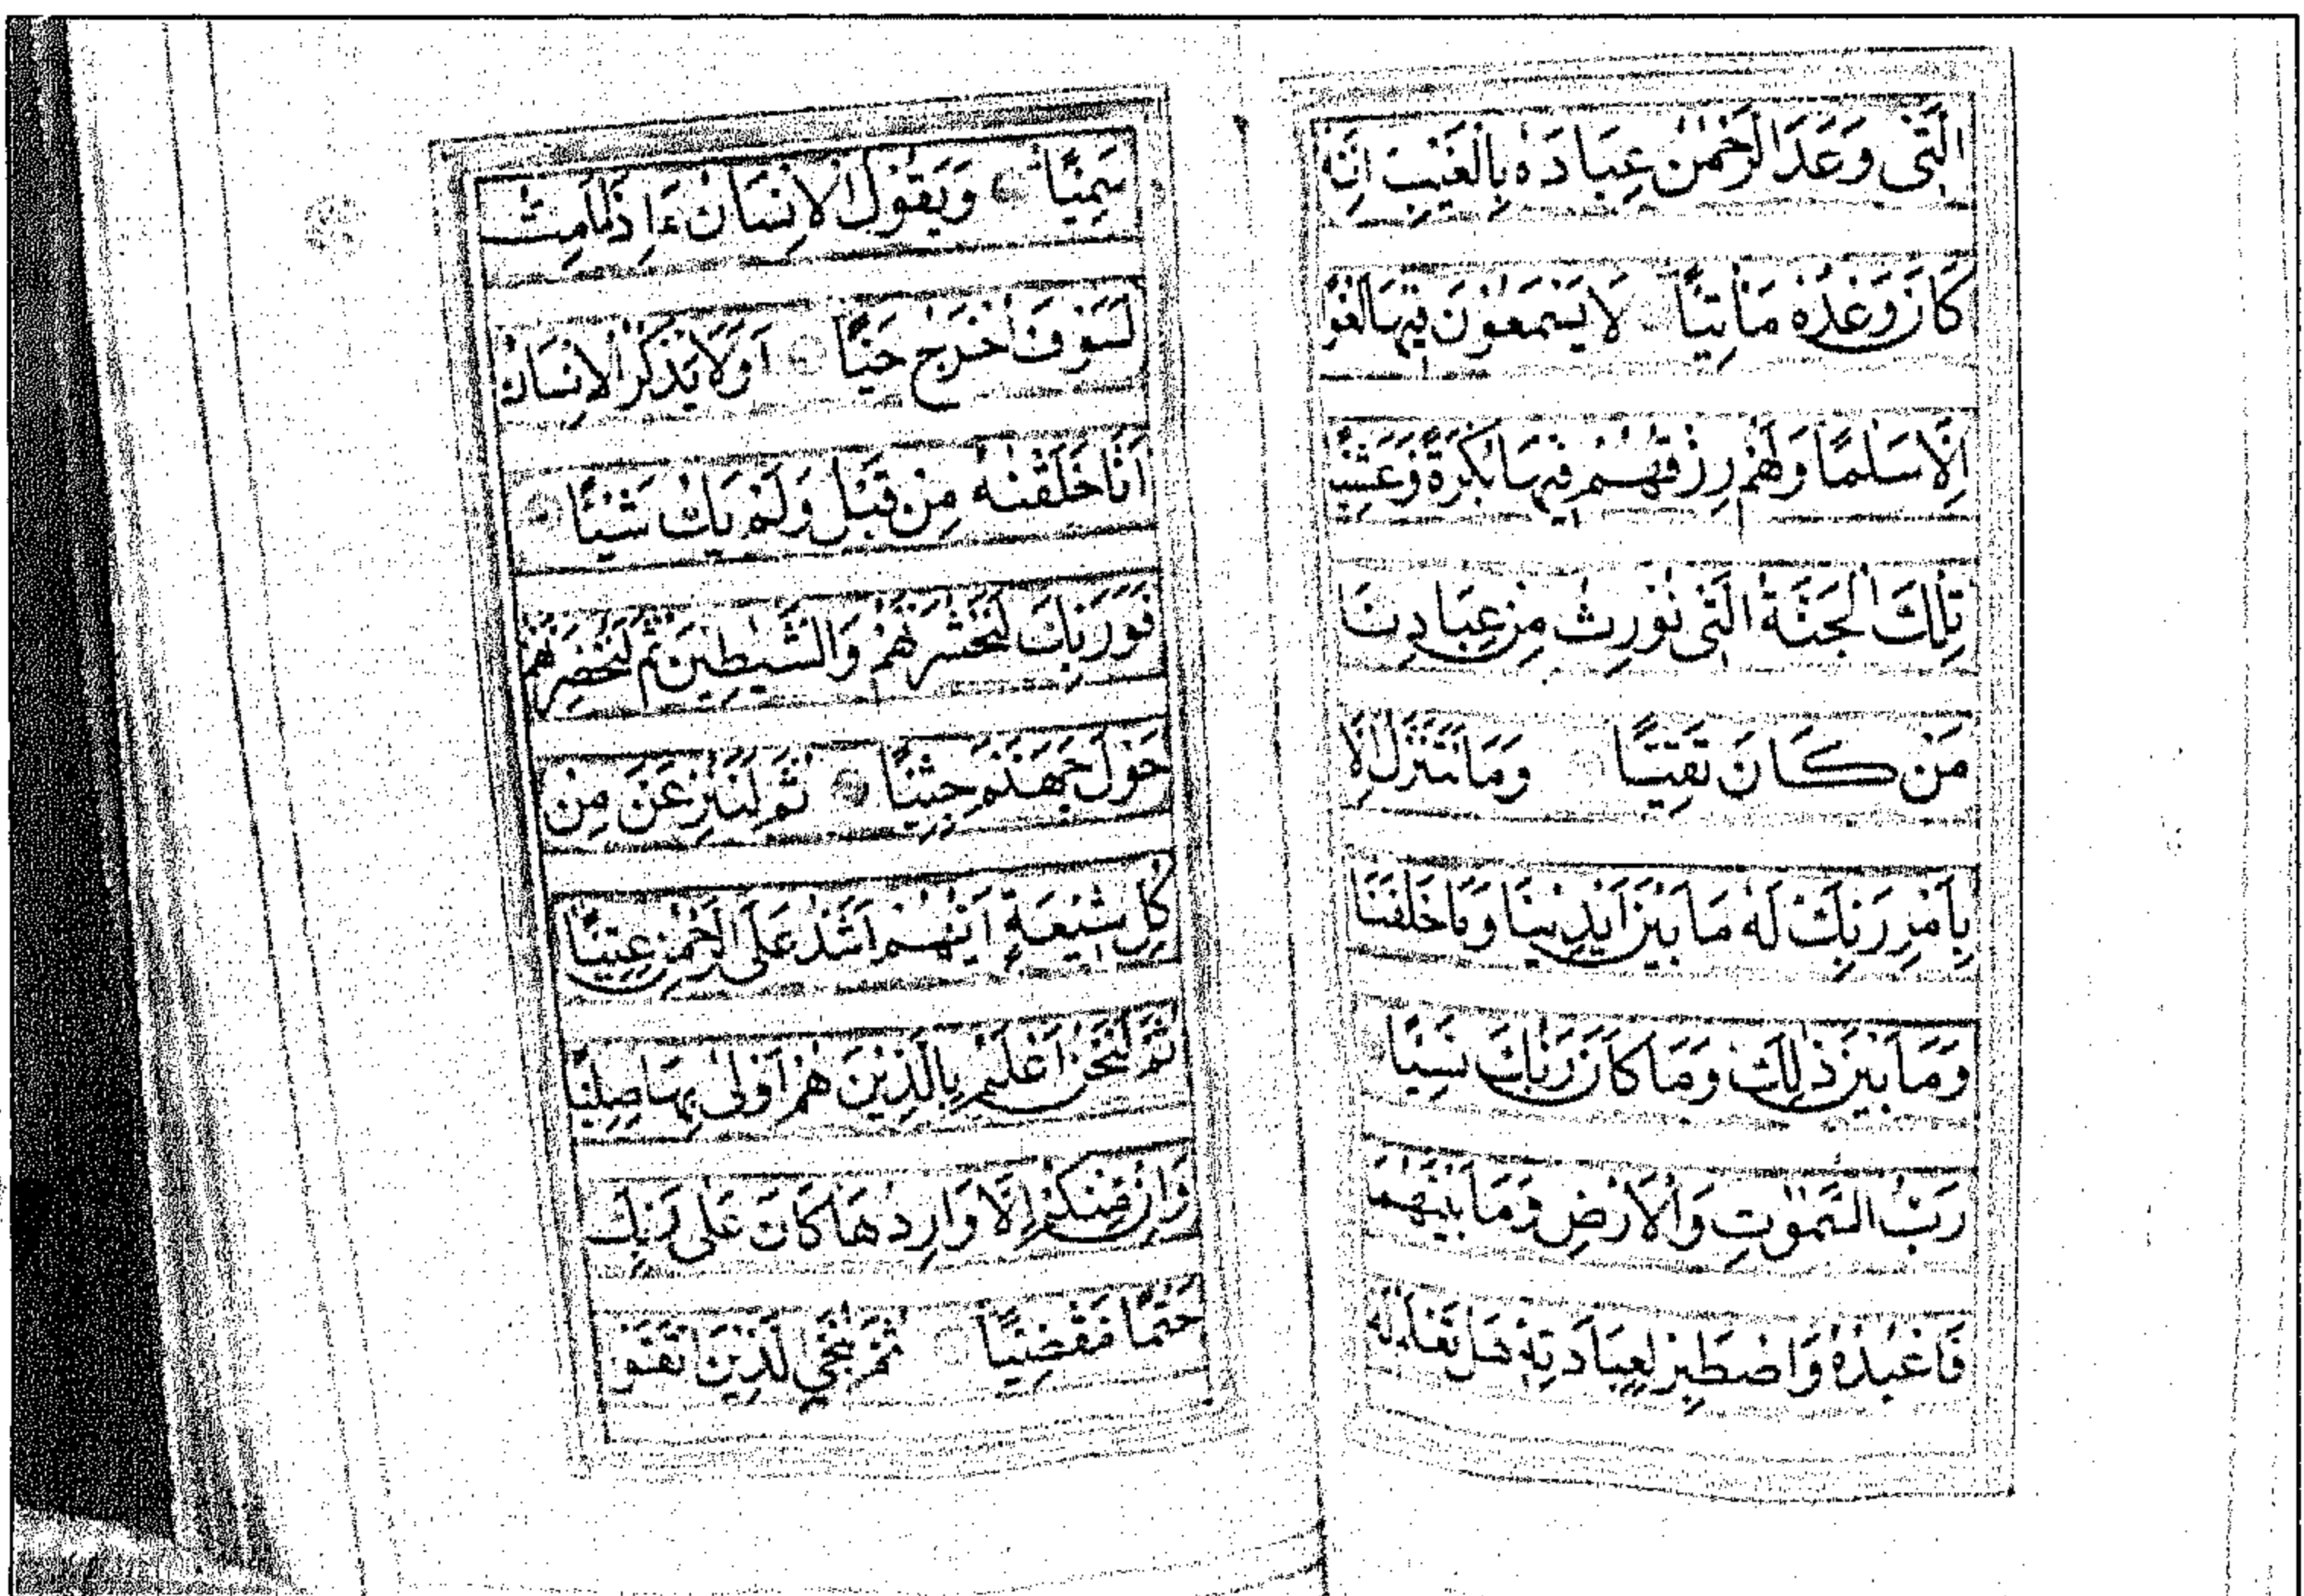 الَّتِى وَعَدَ الرَّحْمٰنُ عِبَادَهُ بِالْغَيْبِ اِنَّهُ
كَانَ وَعْدُهُ مَاْتِيًّا لَا يَسْمَعُوْنَ فِيْهَا لَغْوًا
اِلَّا سَلٰمًا وَلَهُمْ رِزْقُهُمْ فِيْهَا بُكْرَةً وَّعَشِيًّا
تِلْكَ الْجَنَّةُ الَّتِى نُوْرِثُ مِنْ عِبَادِنَا
مَنْ كَانَ تَقِيًّا وَمَا نَتَنَزَّلُ اِلَّا
بِاَمْرِ رَبِّكَ لَهُ مَا بَيْنَ اَيْدِيْنَا وَمَا خَلْفَنَا
وَمَا بَيْنَ ذٰلِكَ وَمَا كَانَ رَبُّكَ نَسِيًّا
رَبُّ السَّمٰوٰتِ وَالْاَرْضِ وَمَا بَيْنَهُمَا
فَاعْبُدْهُ وَاصْطَبِرْ لِعِبَادَتِهٖ هَلْ تَعْلَمُ لَهُ
سَمِيًّا وَيَقُوْلُ الْاِنْسَانُ ءَاِذَا مَا مِتُّ
لَسَوْفَ اُخْرَجُ حَيًّا اَوَلَا يَذْكُرُ الْاِنْسَانُ
اَنَّا خَلَقْنٰهُ مِنْ قَبْلُ وَلَمْ يَكُ شَيْئًا
فَوَرَبِّكَ لَنَحْشُرَنَّهُمْ وَالشَّيٰطِيْنَ ثُمَّ لَنُحْضِرَنَّهُمْ
حَوْلَ جَهَنَّمَ جِثِيًّا ثُمَّ لَنَنْزِعَنَّ مِنْ
كُلِّ شِيْعَةٍ اَيُّهُمْ اَشَدُّ عَلَى الرَّحْمٰنِ عِتِيًّا
ثُمَّ لَنَحْنُ اَعْلَمُ بِالَّذِيْنَ هُمْ اَوْلٰى بِهَا صِلِيًّا
وَاِنْ مِّنْكُمْ اِلَّا وَارِدُهَا كَانَ عَلٰى رَبِّكَ
حَتْمًا مَّقْضِيًّا ثُمَّ نُنَجِّى الَّذِيْنَ اتَّقَوْا